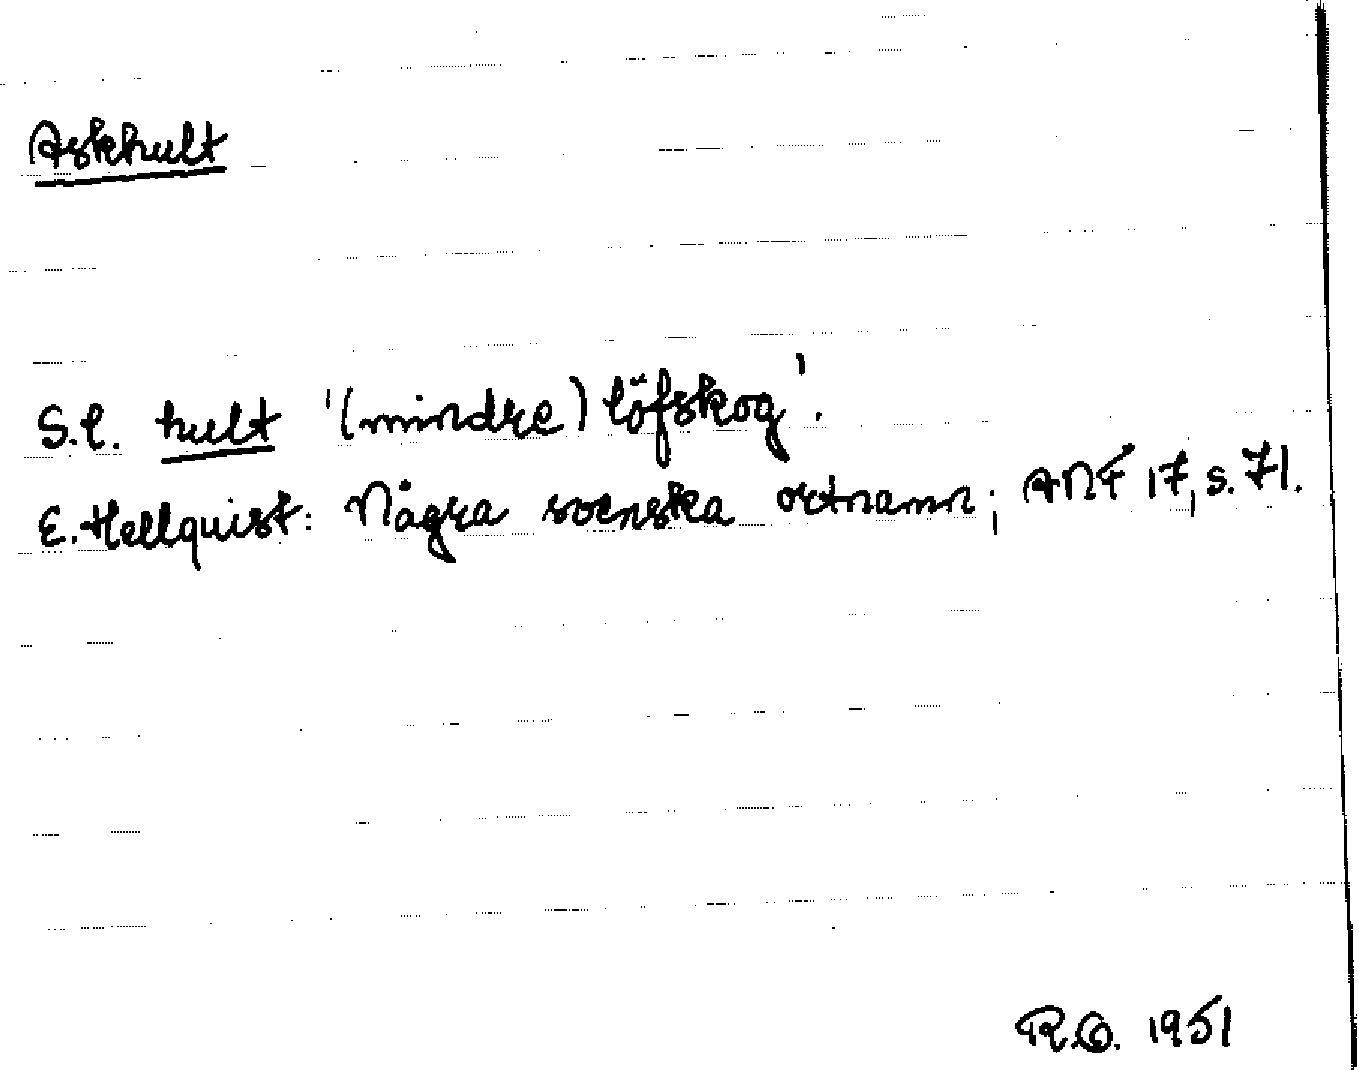 Askhult
S.l. hult '(mindre) löfskog'.
E. Hellquist: Några svenska ortnamn; ANF 17, s. 71.
R.O. 1951